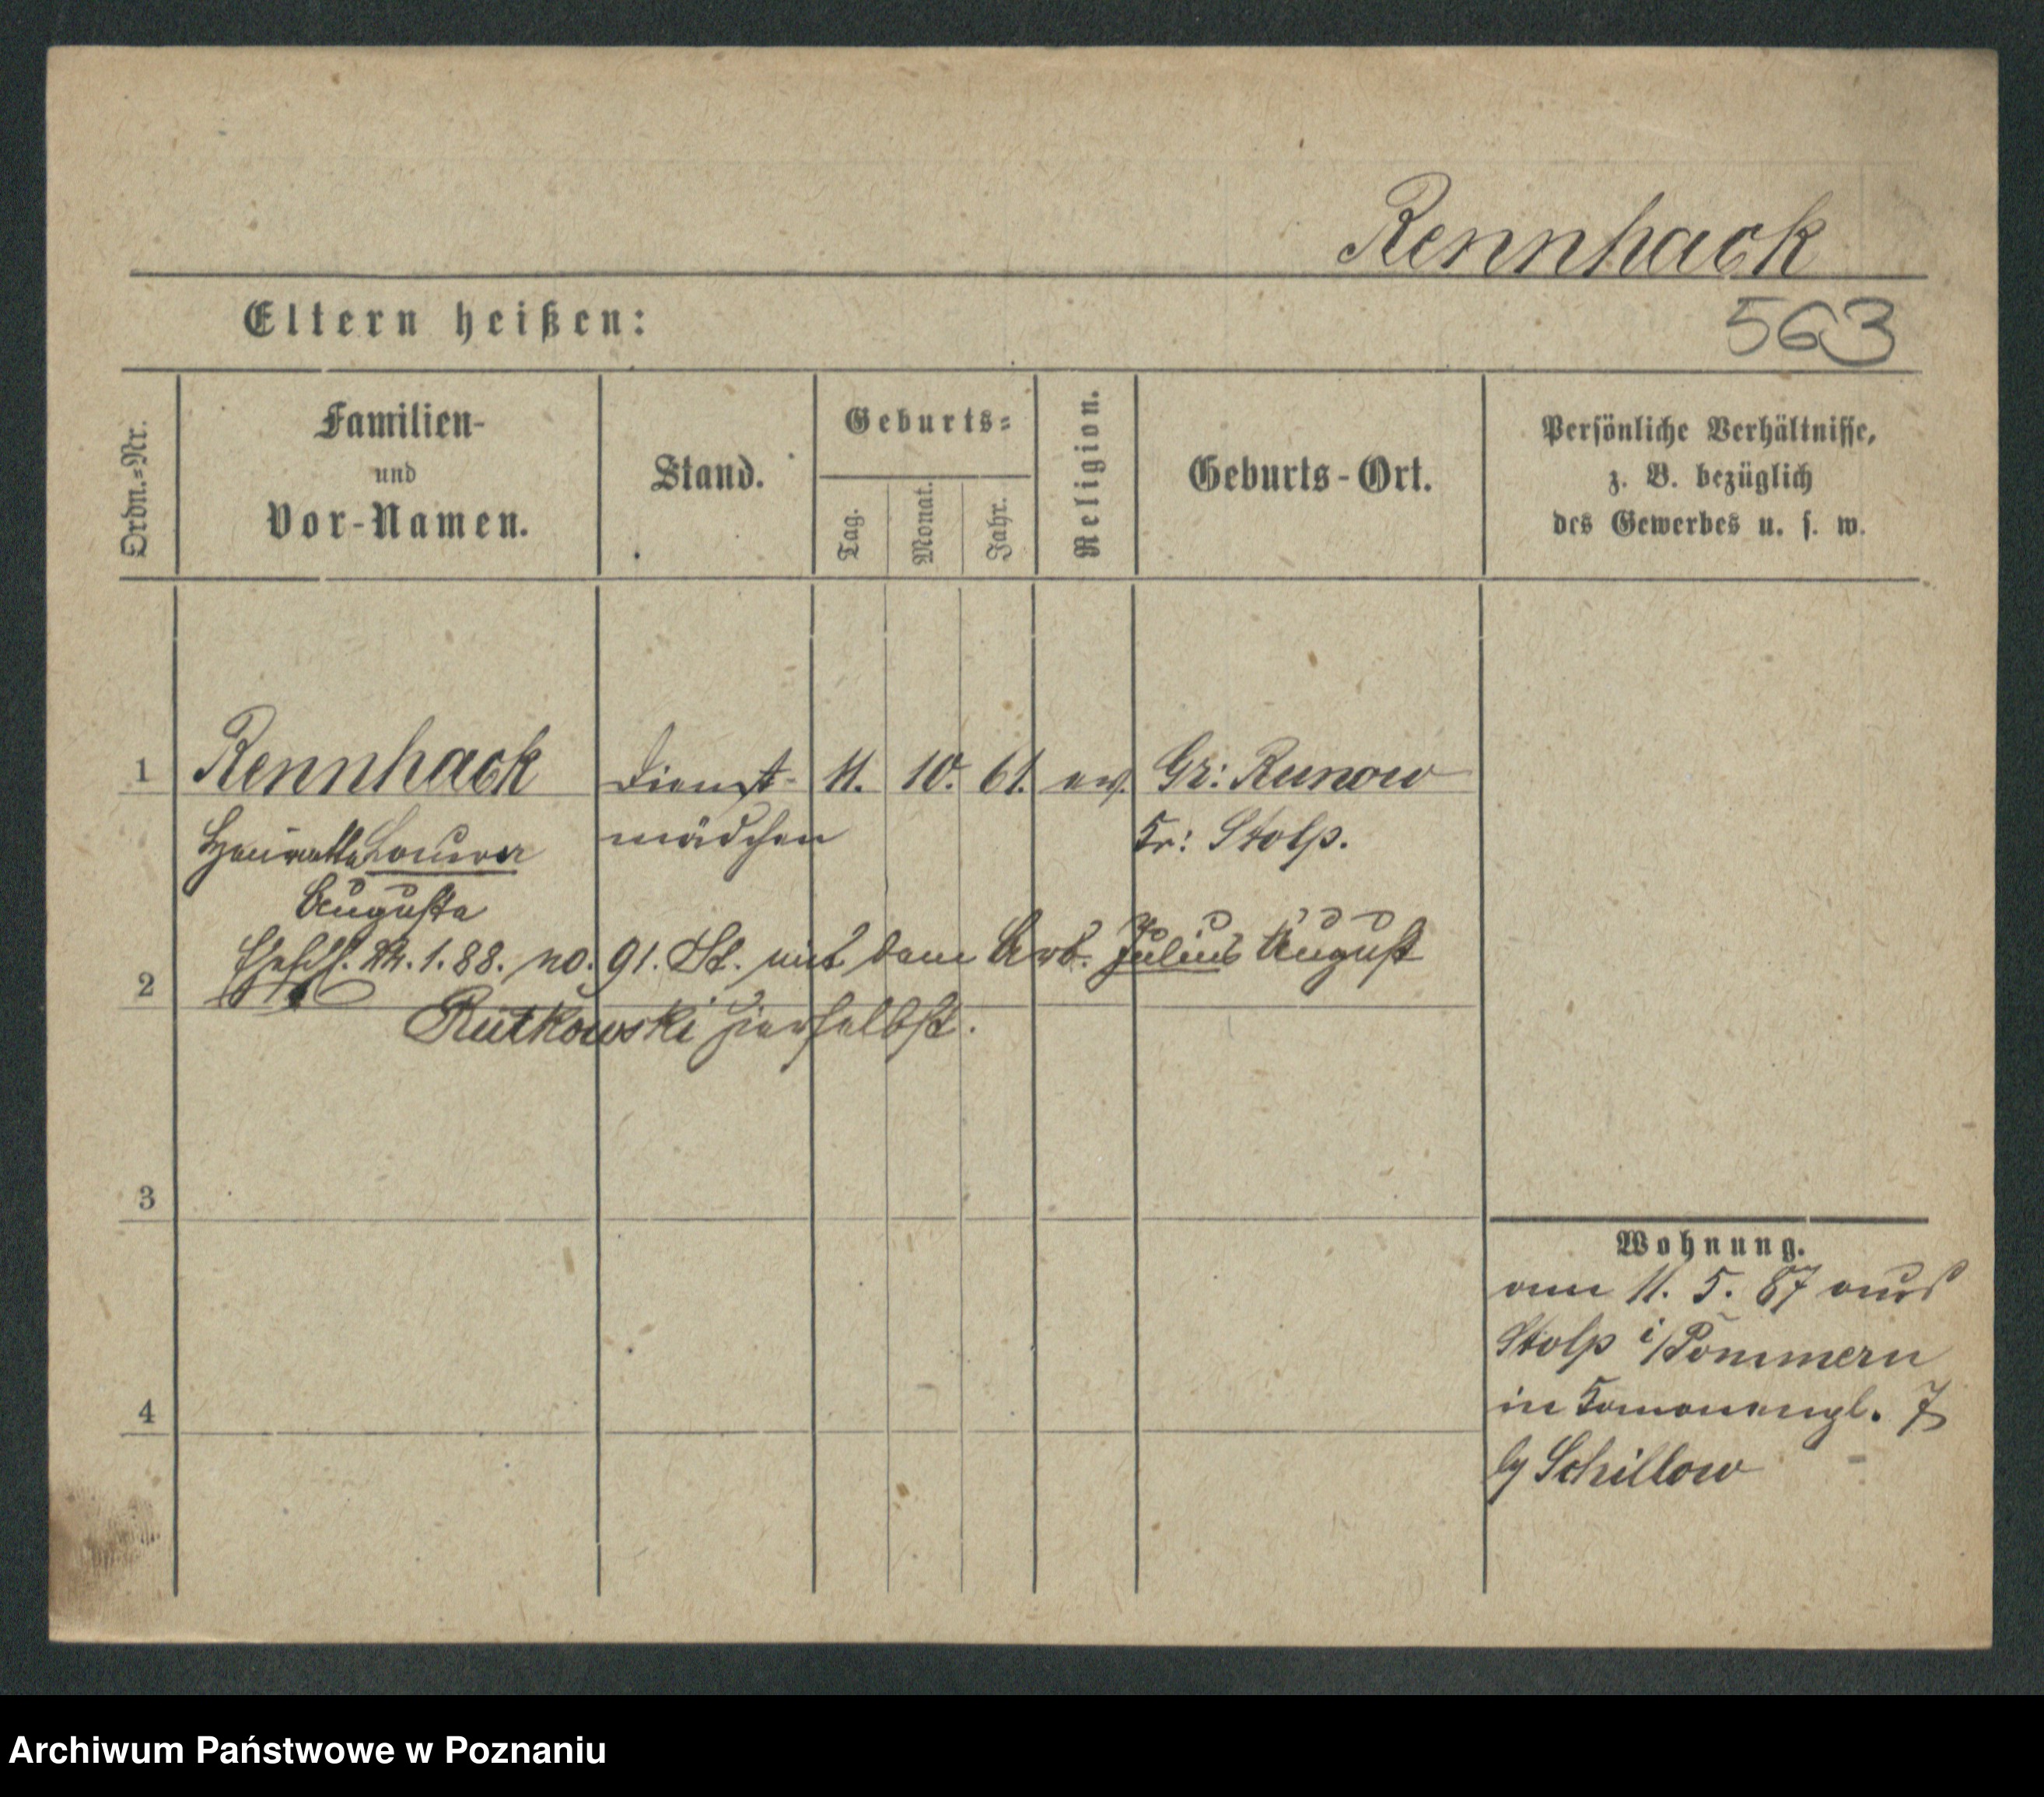 Rennhack
Eltern heißen:
563
Ordn.=Nr.
Familien-
und
Vor-Namen.
Stand.
Geburts=
Tag.
Monat.
Jahr.
Religion.
Geburts-Ort.
Persönliche Verhältnisse,
z. B. bezüglich
des Gewerbes u. s. w.
1 Rennhack Dienst- 11. 10. 61. ev. Gr: Runow
Henriette Laura mädchen Kr: Stolp.
Augusta
Eheschl. 1.88. no. 91. St. mit dem Arb. Julius August
2
Rutkowski hierselbst.
3
Wohnung.
am 11. 5. 87 aus
Stolp i/Pommern
4
in 7
by Schillow
Archiwum Państwowe w Poznaniu